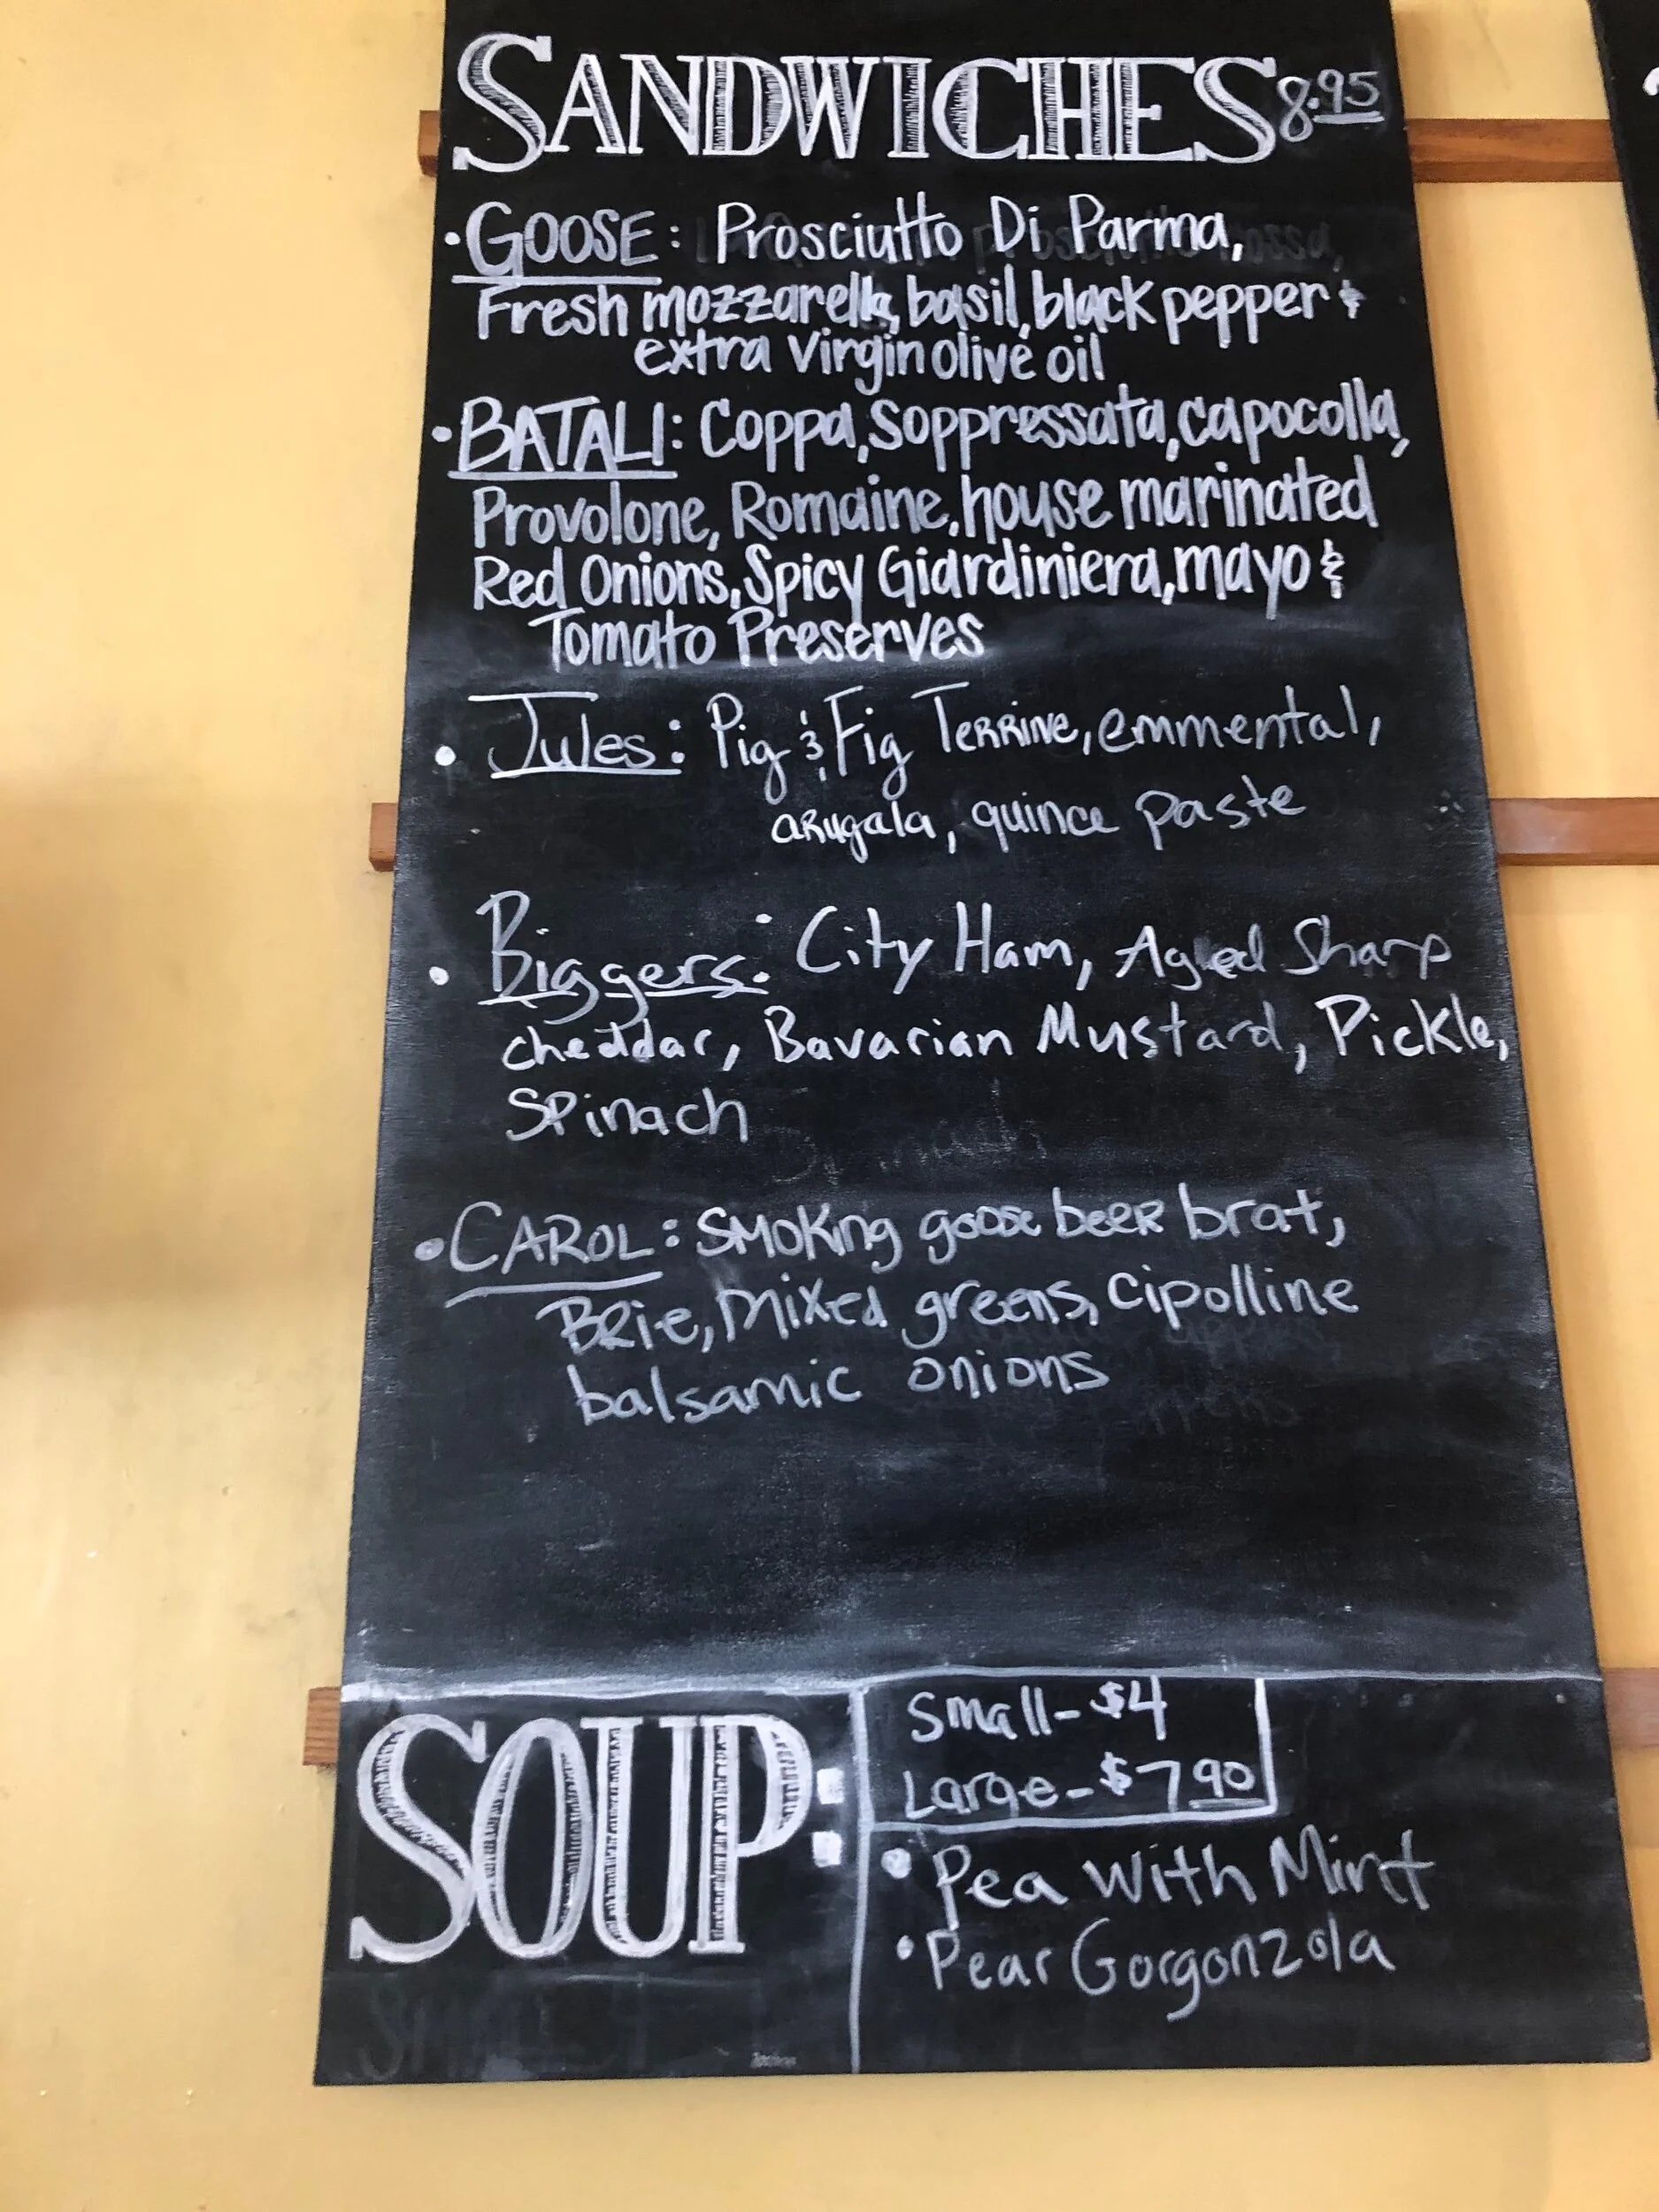 SANDWICHES 8.95
• GOOSE: Prosciutto Di Parma,
Fresh mozzarella, basil, black pepper &
extra Virgin olive oil
• BATALI: Coppa, Soppressata, capocolla,
Provolone, Romaine, house marinated
Red Onions, Spicy Giardiniera, mayo &
Tomato Preserves
• Jules: Pig & Fig Terrine, emmental,
arugala, quince paste
• Biggers: City Ham, Aged Sharp
cheddar, Bavarian Mustard, Pickle,
Spinach
• CAROL: Smoking goose beer brat,
Brie, mixed greens, cipolline
balsamic onions
SOUP:
Small - $4
Large - $7 90
• Pea with Mint
• Pear Gorgonzola